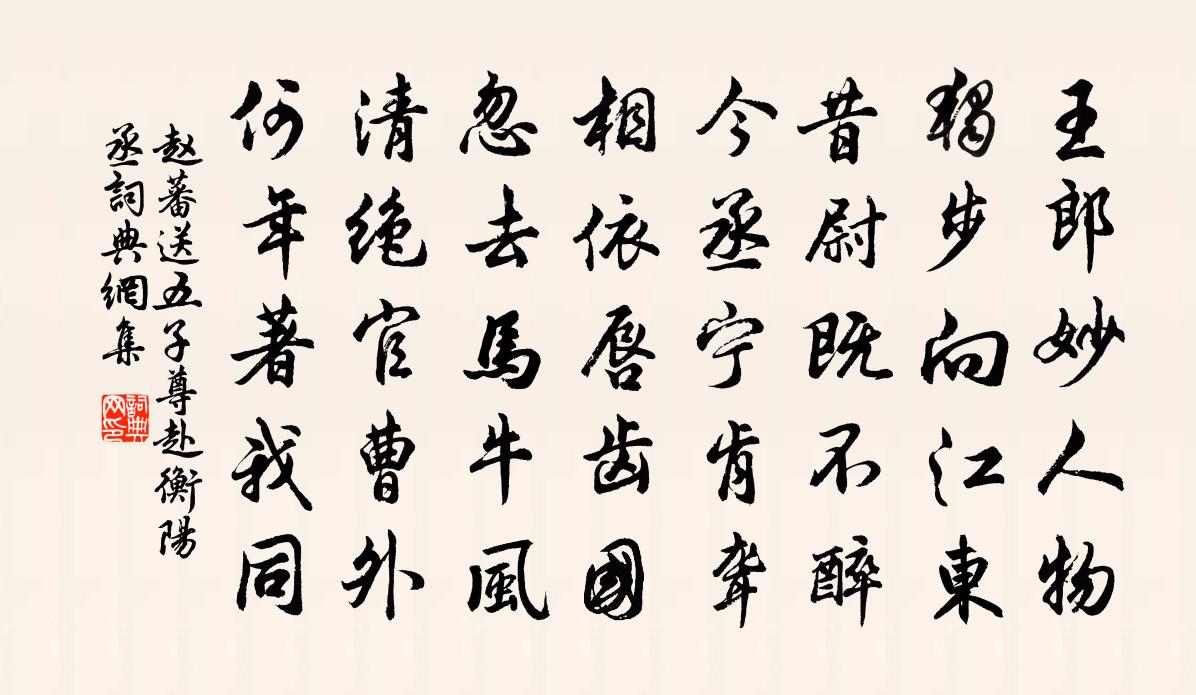 王郎妙人物
獨步向江東
昔尉既不醉
今丞宁肯聋
相依唇齿國
忽去馬牛風
清绝官曹外
何年著我同
赵蕃送五子尊赴衡陽
丞詞典網集
詞典
网印